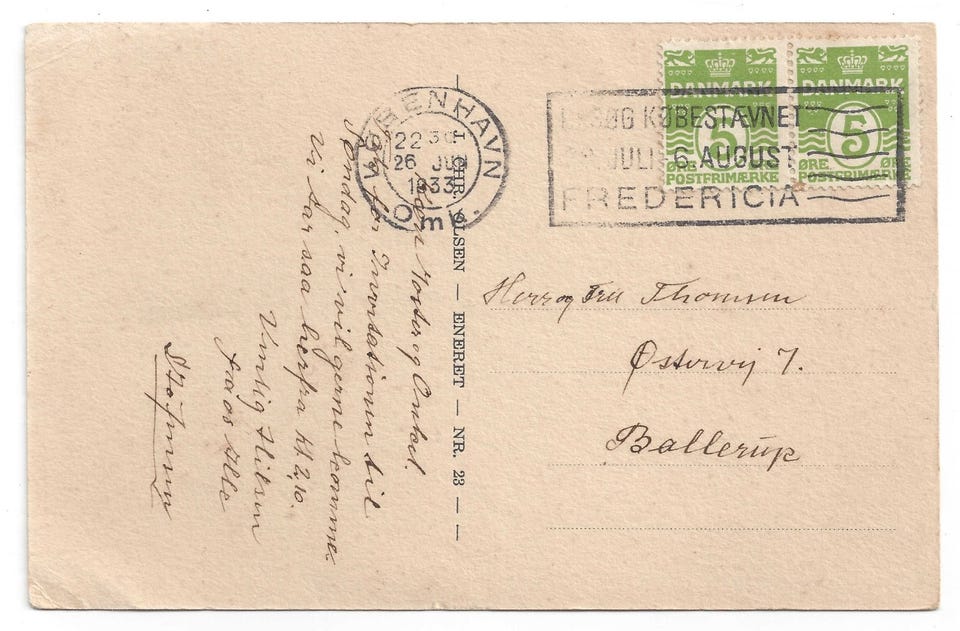 Kære Moster og Onkel.
Tak for Invitationen til
Søndag, vi vil gerne komme
Vi tar saa herfra Kl. 2,10.
Venlig Hilsen
fra os Alle
CHR. OLSEN — ENERET — NR. 23 — —
KØBENHAVN
22 30
26
1933
OMK.
DANMARK
5
ØRE ØRE
POSTFRIMÆRKE
DANMARK
5
ØRE ØRE
POSTFRIMÆRKE
BESØG KØBESTÆVNET
JULI-6 AUGUST
FREDERICIA
Herr og Fru Thomsen
Østervej 7.
Ballerup